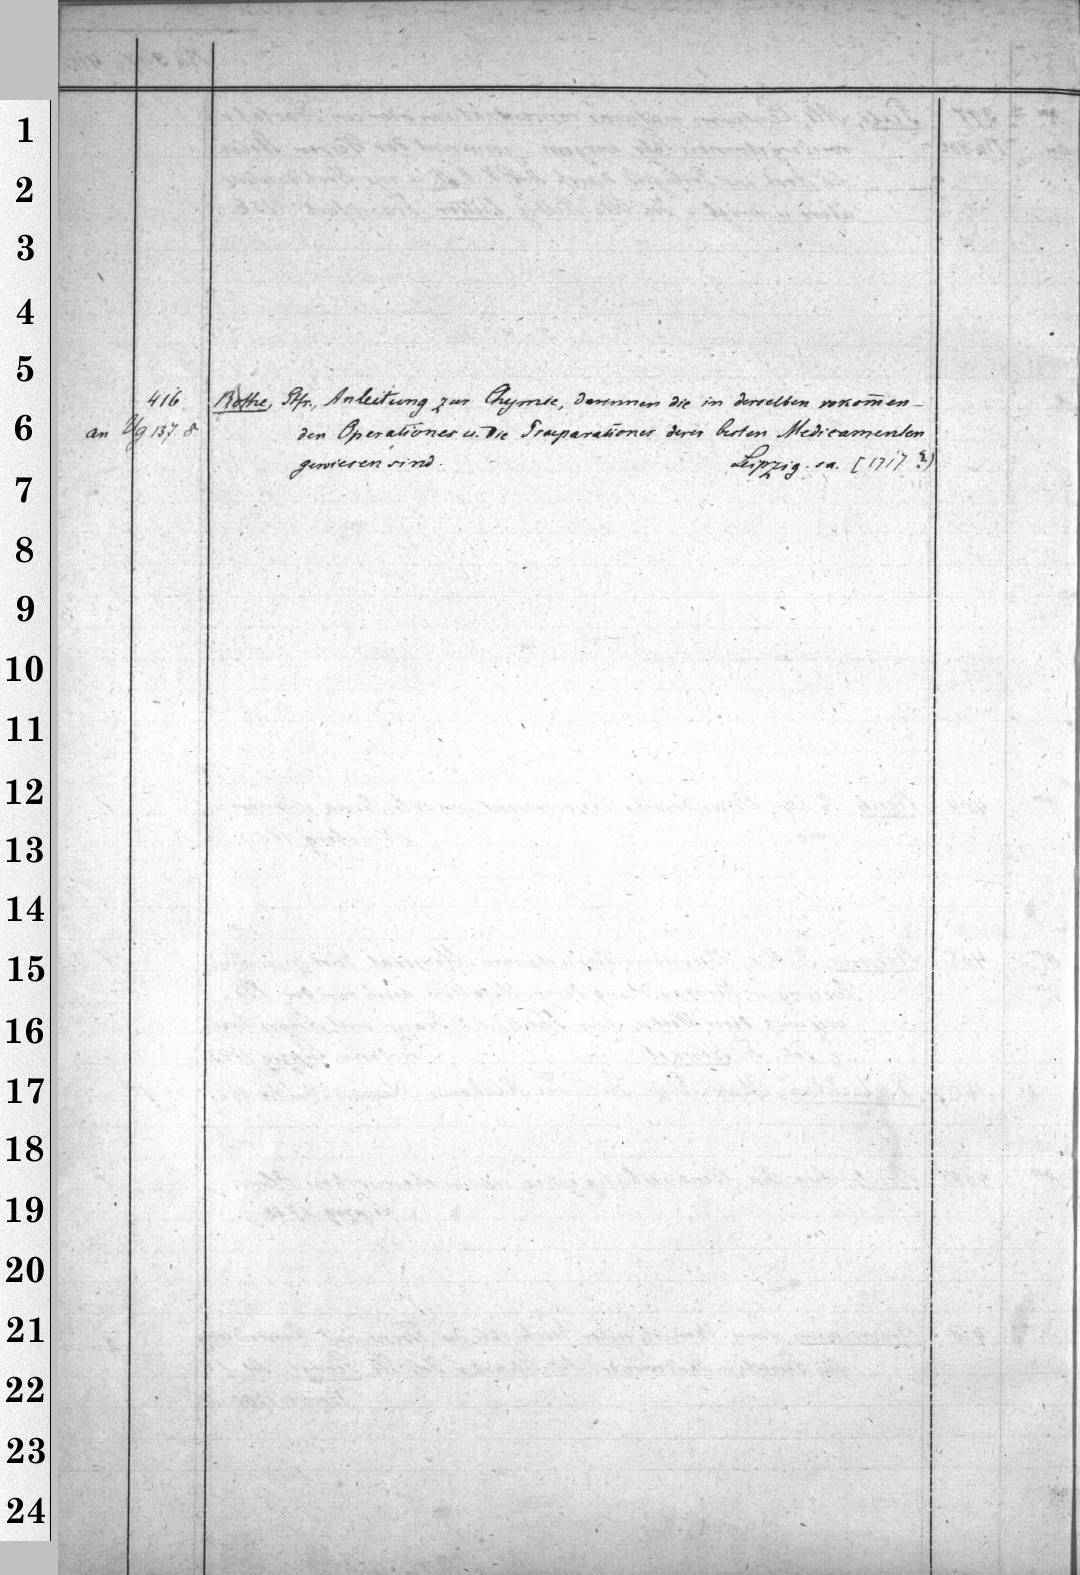 1
2
3
4
5
416 Rothe, Gfr., Anleitung zur Chymie, darinnen die in derselben vorkom̄en-
6
an Ug 137 8 den Operationes u. die Praeparationes derer besten Medicamenten
gewiesen sind. Leipzig. s.a. [1717?]
7
8
9
10
11
12
13
14
15
16
17
18
19
20
21
22
23
24